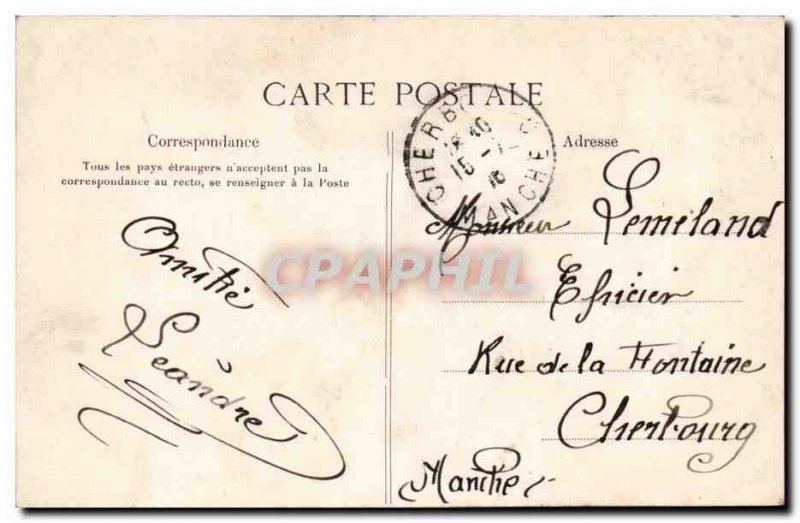 CARTE POSTALE
Correspondance
Tous les pays étrangers n'acceptent pas la
correspondance au recto, se renseigner à la Poste
Amitié
Léandre
CHERB
40
15 - 7
MANCHE
Adresse
Monsieur Lemeland
Epicier
Rue de la Fontaine
Cherbourg
Manche
CPAPHIL